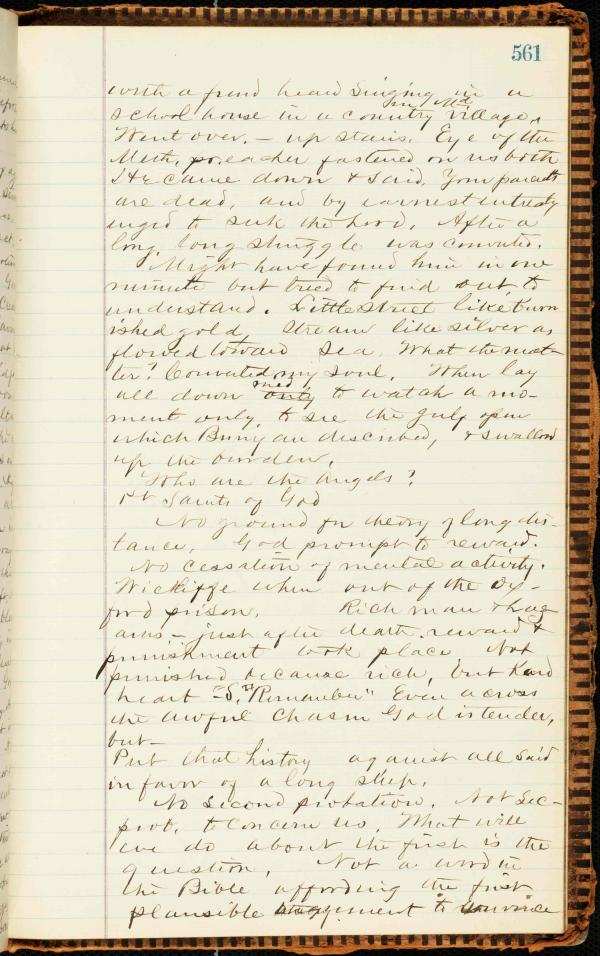 561
with a friend heard singing in a
in Md.
school house in a country village,
Went over. – up stairs. Eye of the
Meth. preacher fastened on us both
& came down & said, Your parents
are dead, and by earnest entreaty
urged to seek the Lord. After a
long, long struggle was converted.
Might have found him in one
minute but tried to find out, to
understand. Little Street like burn
ished gold, Stream like silver as
flowed toward Sea. What the mat-
ter? Converted my soul. When lay
all down only to watch a mo-
ment only, to see the gulf open
which Bunyan described, & swallow
up the burden.
Who are the angels?
1st Saints of God
No ground for theory of long dis-
tance. God prompt to reward.
No cessation of mental activity.
Wickliffe when out of the Ox-
ford prison. Rich man & Laz
arus – just after death reward &
punishment took place. Not
punished because rich, but hard
heart – "Remember" Even across
the awful chasm God is tender,
but –
Put that history against all said
in favor of a long sleep.
No second probation. Not sec-
prob. to concern us. What will
we do about the first is the
question. Not a word in
the Bible affording the first
plausible argument to convince